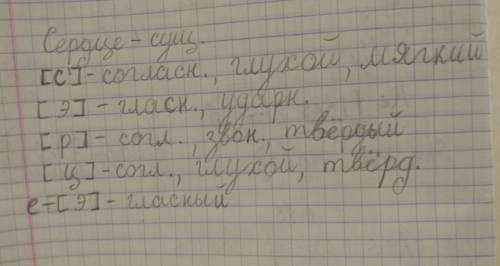 Сердце - сущ.
[с'] - согласн., глухой, мягкий
[э] - гласн., ударн.
[р] - согл., звон., твёрдый
[ц] - согл., глухой, твёрд.
е - [э] - гласный